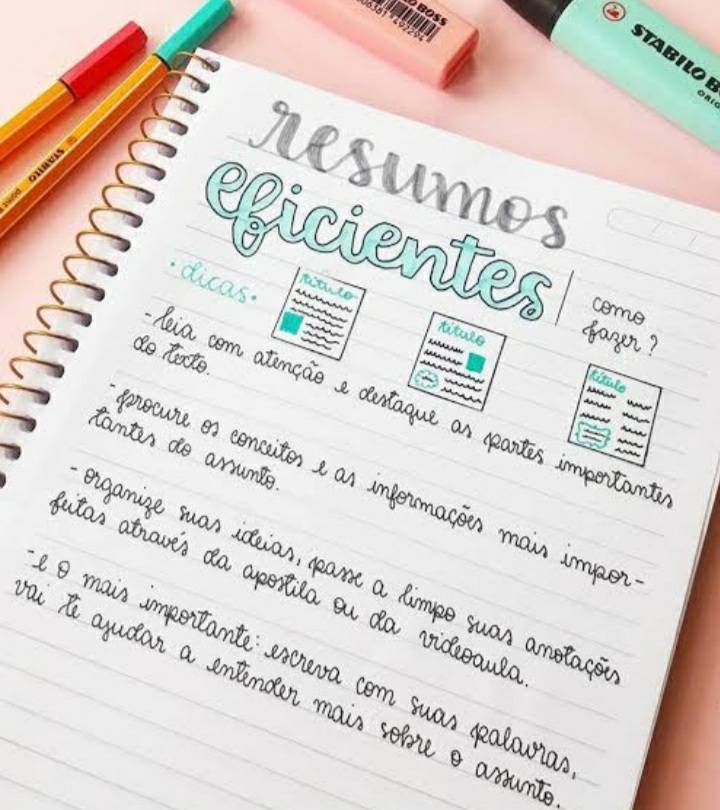 BOSS
STABILO B
ORIG
STABILO
resumos
eficientes
como
fazer?
·dicas·
título
título
título
-leia com atenção e destaque as partes importantes
do texto.
-procure os conceitos e as informações mais impor-
tantes do assunto.
-organize suas ideias, passe a limpo suas anotações
feitas através da apostila ou da videoaula.
-e o mais importante: escreva com suas palavras,
vai te ajudar a entender mais sobre o assunto.